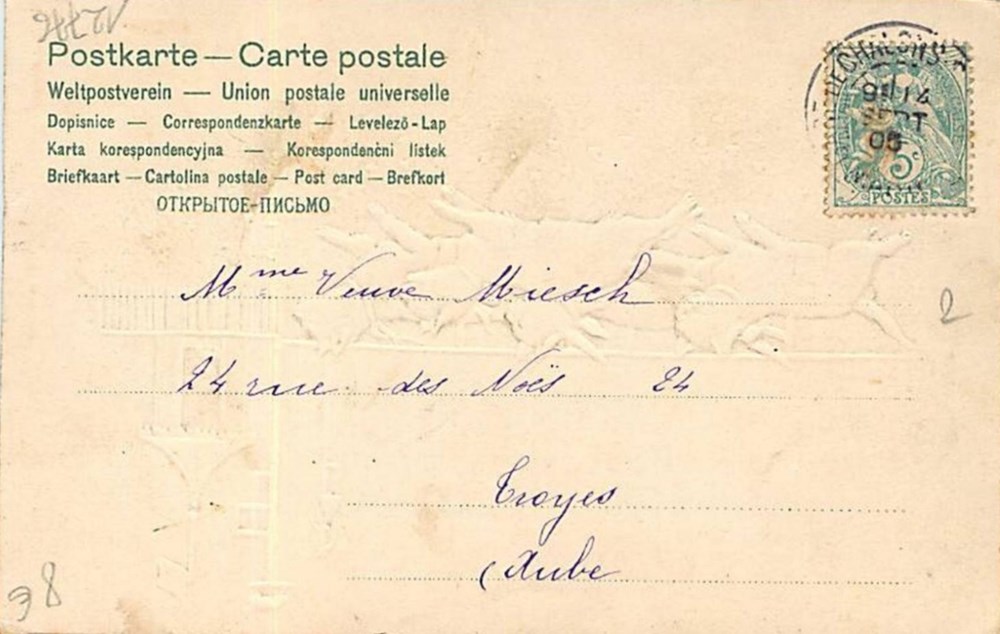 Postkarte — Carte postale
Weltpostverein — Union postale universelle
Dopisnice — Correspondenzkarte — Levelező-Lap
Karta korespondencyjna — Korespondenční lístek
Briefkaart — Cartolina postale — Post card — Brefkort
ОТКРЫТОЕ-ПИСЬМО
DE CHALONS
14
SEPT
05
5c
POSTES
Mme Veuve Miesch
2
24 rue des Noës 24
Troyes
Aube
8